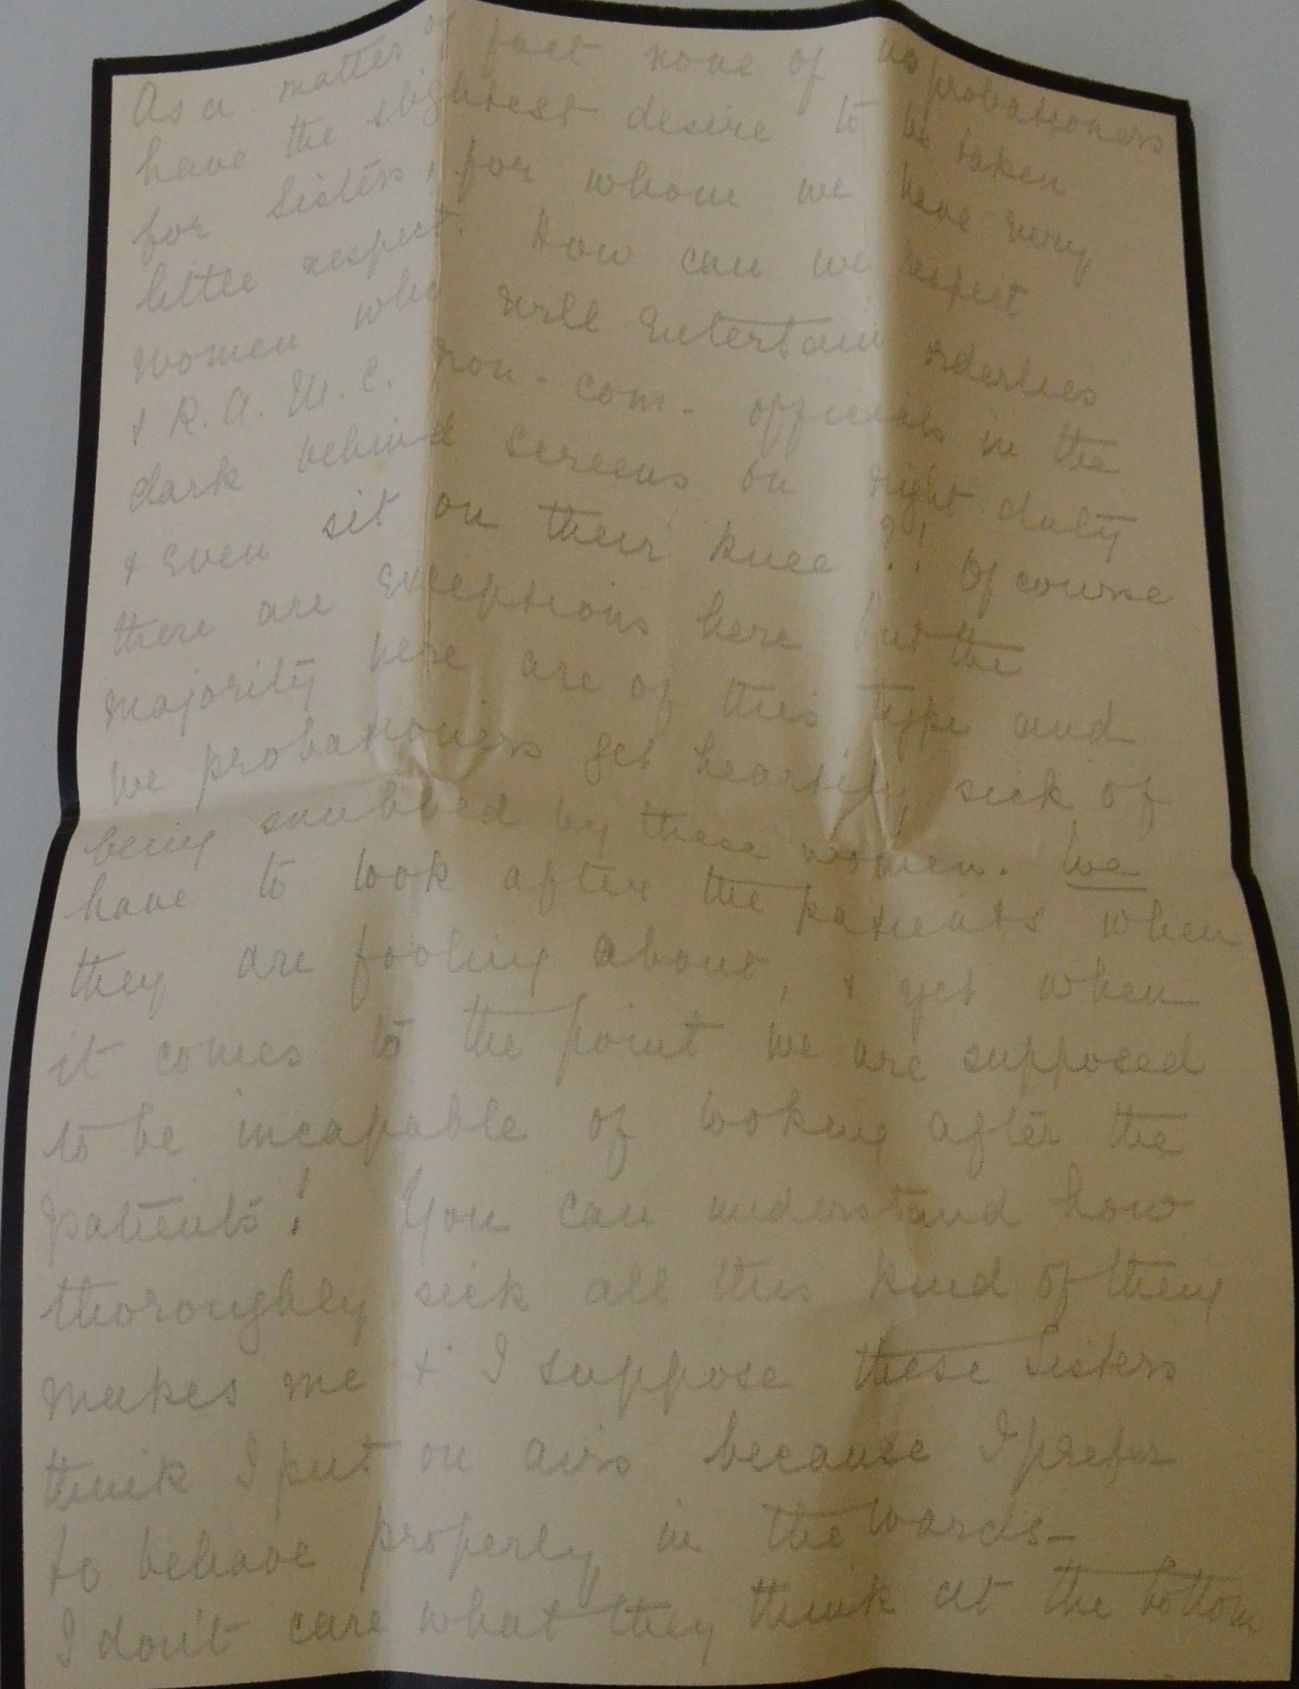 As a matter of fact none of us probationers
have the slightest desire to be taken
for Sisters, for whom we have very
little respect. How can we respect
women who will entertain orderlies
& R.A.M.C. non-com-officials in the
dark behind screens on night duty
& even sit on their knee?!! Of course
there are exceptions here but the
majority here are of this type and
we probationers get heartily sick of
being snubbed by these women. We
have to look after the patients when
they are fooling about, & yet when
it comes to the point we are supposed
to be incapable of looking after the
patients! You can understand how
thoroughly sick all this kind of thing
makes me & I suppose these Sisters
think I put on airs because I prefer
to behave properly in the wards—
I don't care what they think at the bottom